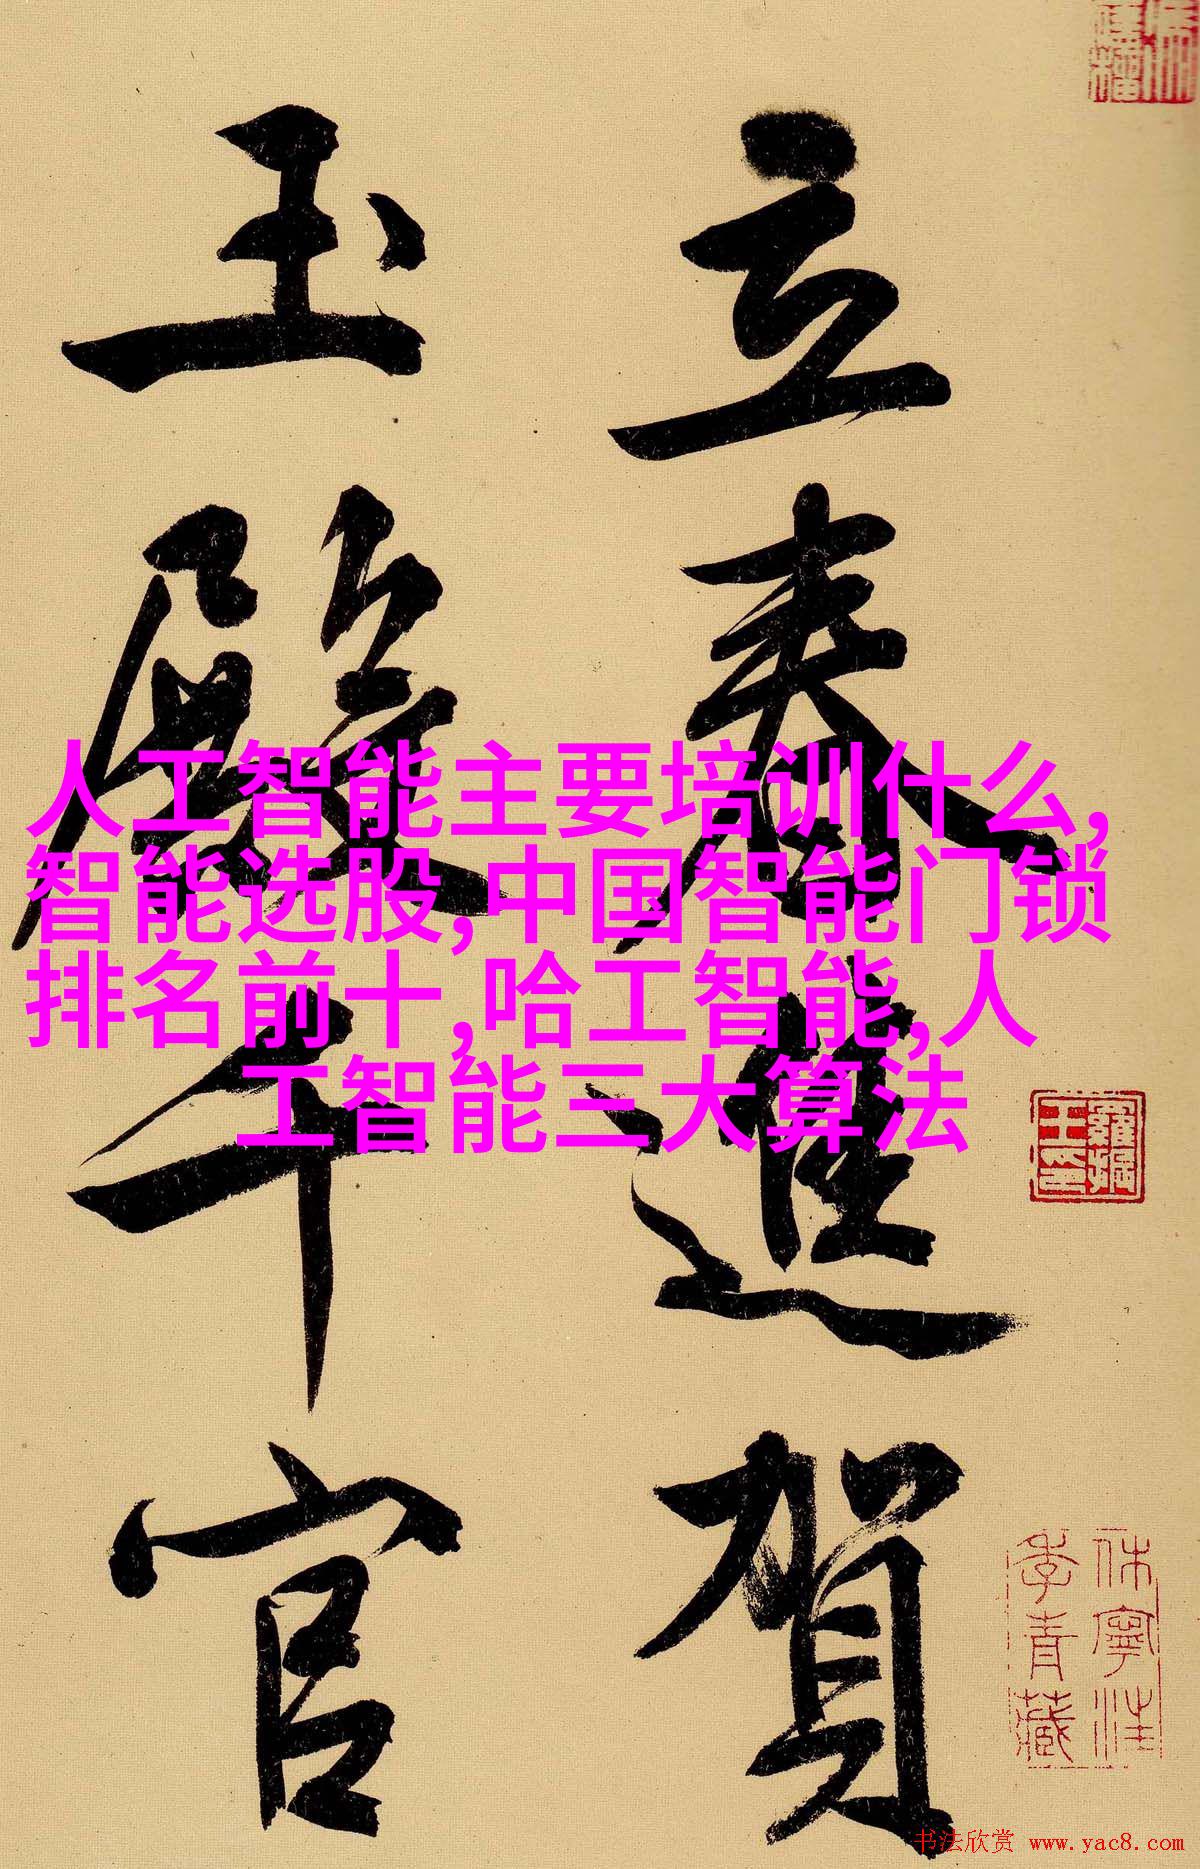 立春進賀
玉殿千官
人工智能主要培训什么,
智能选股,中国智能门锁
排名前十,哈工智能,人
工智能三大算法
休寧汪
季青藏
书法欣赏 www.yac8.com